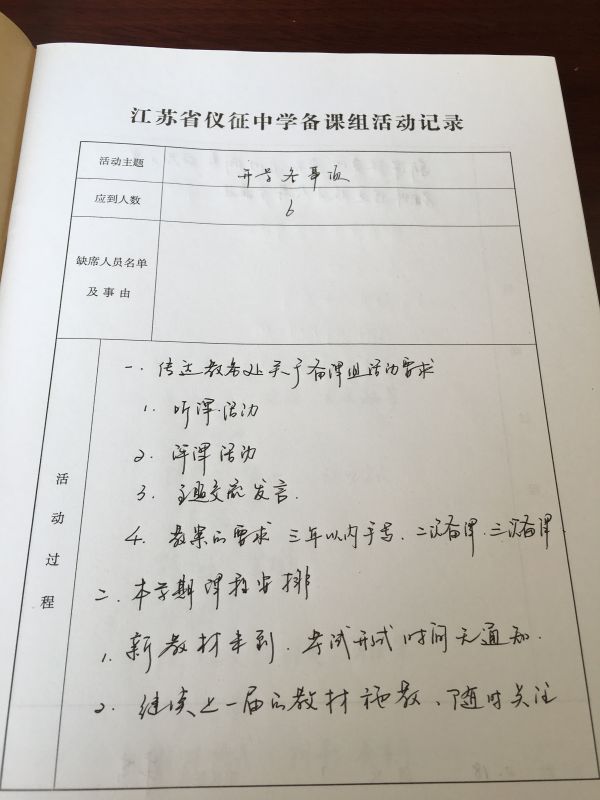 江苏省仪征中学备课组活动记录
活动主题 开学各事项
应到人数 6
缺席人员名单
及事由
活动过程
一、传达教务处关于备课组活动要求
1. 听课活动
2. 评课活动
3. 主题交流发言.
4. 教案的要求 三年以内手写、二次备课、三次备课.
二、本学期课程安排
1. 新教材未到、考试形式时间无通知.
2. 继续上一届的教材施教、随时关注